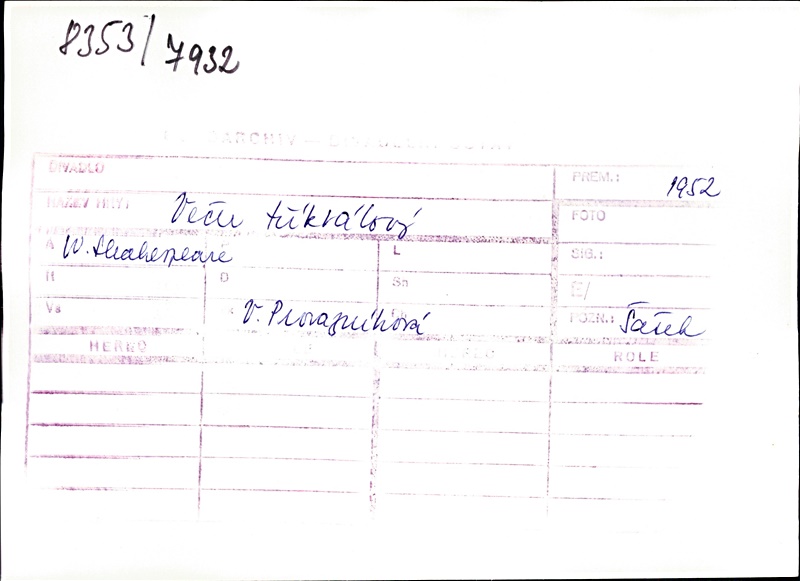 8353/7932
DIVADLO
PREM.: 1952
NÁZEV HRY: Večer tříkrálový
FOTO
A W. Shakespeare
L
SIG.:
H
D
Sn
E/
Vs
V. Provazníková
POZN.: Šátek
HEREC
ROLE